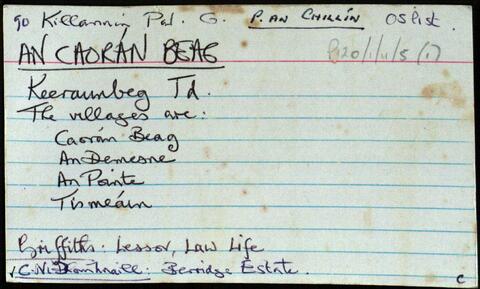 90 Killannin Par. G. P. AN CHILLÍN OS list.
AN CAORÁN BEAG P120/1/1/5 (7)
Keeraunbeg Td.
The villages are:
Caorán Beag
An Demesne
An Pointe
Tismeáin
Griffiths: Lessor, Law Life
C. Ní Dhomhnaill: Berridge Estate.
C